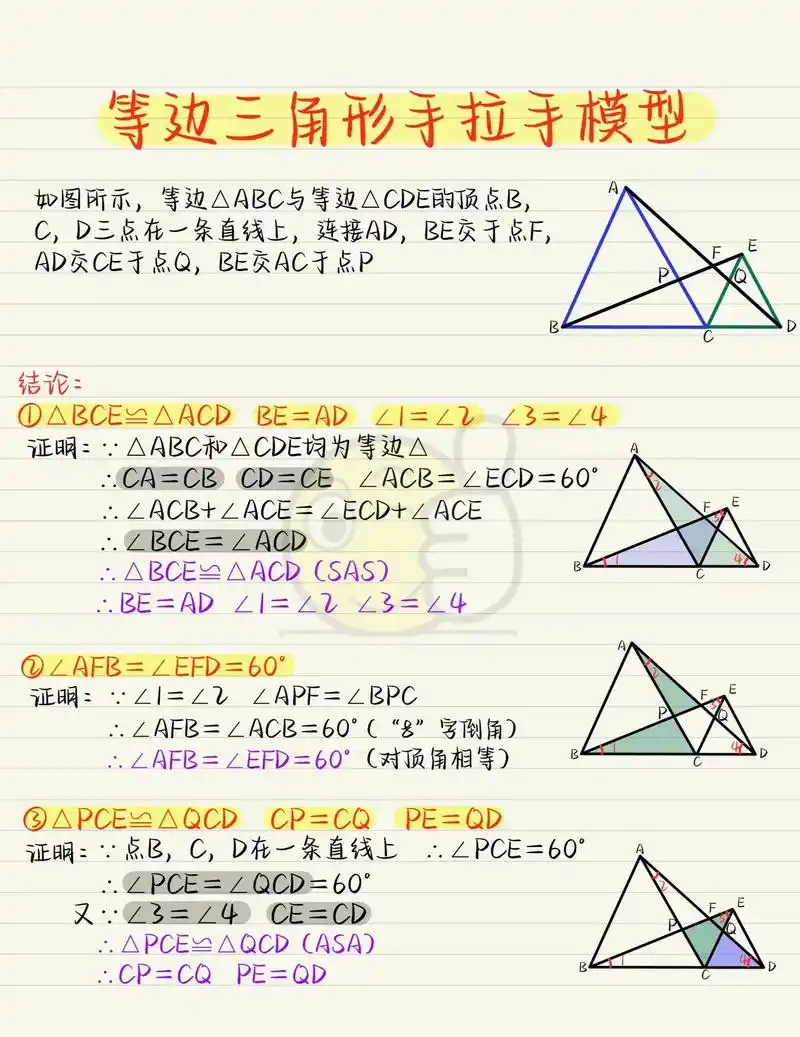 等边三角形手拉手模型
如图所示，等边△ABC与等边△CDE的顶点B，
C，D三点在一条直线上，连接AD，BE交于点F，
AD交CE于点Q，BE交AC于点P
A
F
E
P
Q
B
C
D
结论：
①△BCE≌△ACD BE=AD ∠1=∠2 ∠3=∠4
证明：∵△ABC和△CDE均为等边△
∴CA=CB CD=CE ∠ACB=∠ECD=60°
∴∠ACB+∠ACE=∠ECD+∠ACE
∴∠BCE=∠ACD
∴△BCE≌△ACD（SAS）
∴BE=AD ∠1=∠2 ∠3=∠4
A
2
F
E
3
B
1
C
4
D
②∠AFB=∠EFD=60°
证明：∵∠1=∠2 ∠APF=∠BPC
∴∠AFB=∠ACB=60°（“8”字倒角）
∴∠AFB=∠EFD=60°（对顶角相等）
A
2
F
E
3
P
Q
B
1
C
4
D
③△PCE≌△QCD CP=CQ PE=QD
证明：∵点B，C，D在一条直线上 ∴∠PCE=60°
∴∠PCE=∠QCD=60°
又∵∠3=∠4 CE=CD
∴△PCE≌△QCD（ASA）
∴CP=CQ PE=QD
A
2
F
E
3
P
Q
B
1
C
4
D